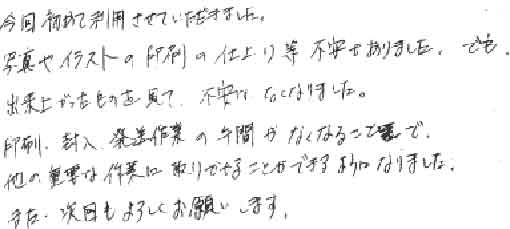 今回初めて利用させていただきました。
写真やイラストの印刷の仕上り等不安もありました。でも、
出来上がったものを見て、不安はなくなりました。
印刷、封入、発送作業の手間がなくなることで、
他の重要な作業に取りくむことができるようになりました。
また、次回もよろしくお願いします。